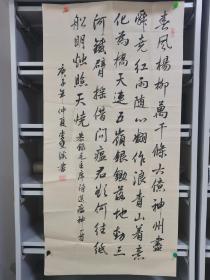 春風楊柳萬千條六億神州盡
舜堯紅雨隨心翻作浪青山着意
化為橋天連五嶺銀鋤落地動三
河鐵臂搖借問瘟君欲何往紙
船明燭照天燒恭錄毛主席詩送瘟神一首
庚子年仲夏